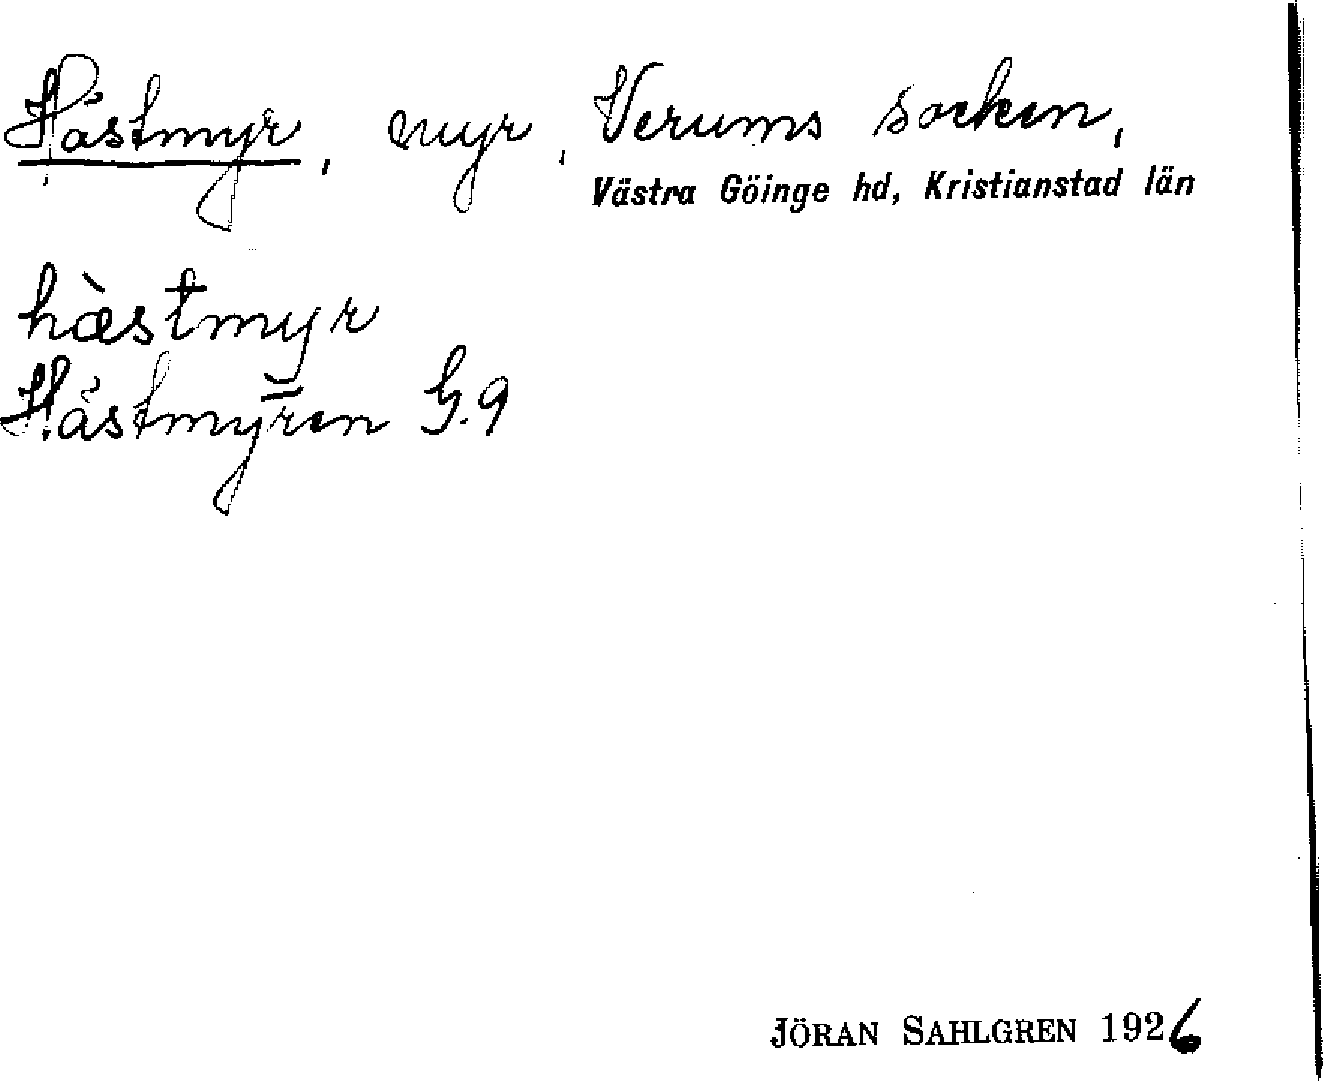 Hästmyr, myr, Verums socken,
Västra Göinge hd, Kristianstad län
hàstmyr
Hästmyren G.9
JÖRAN SAHLGREN 1926